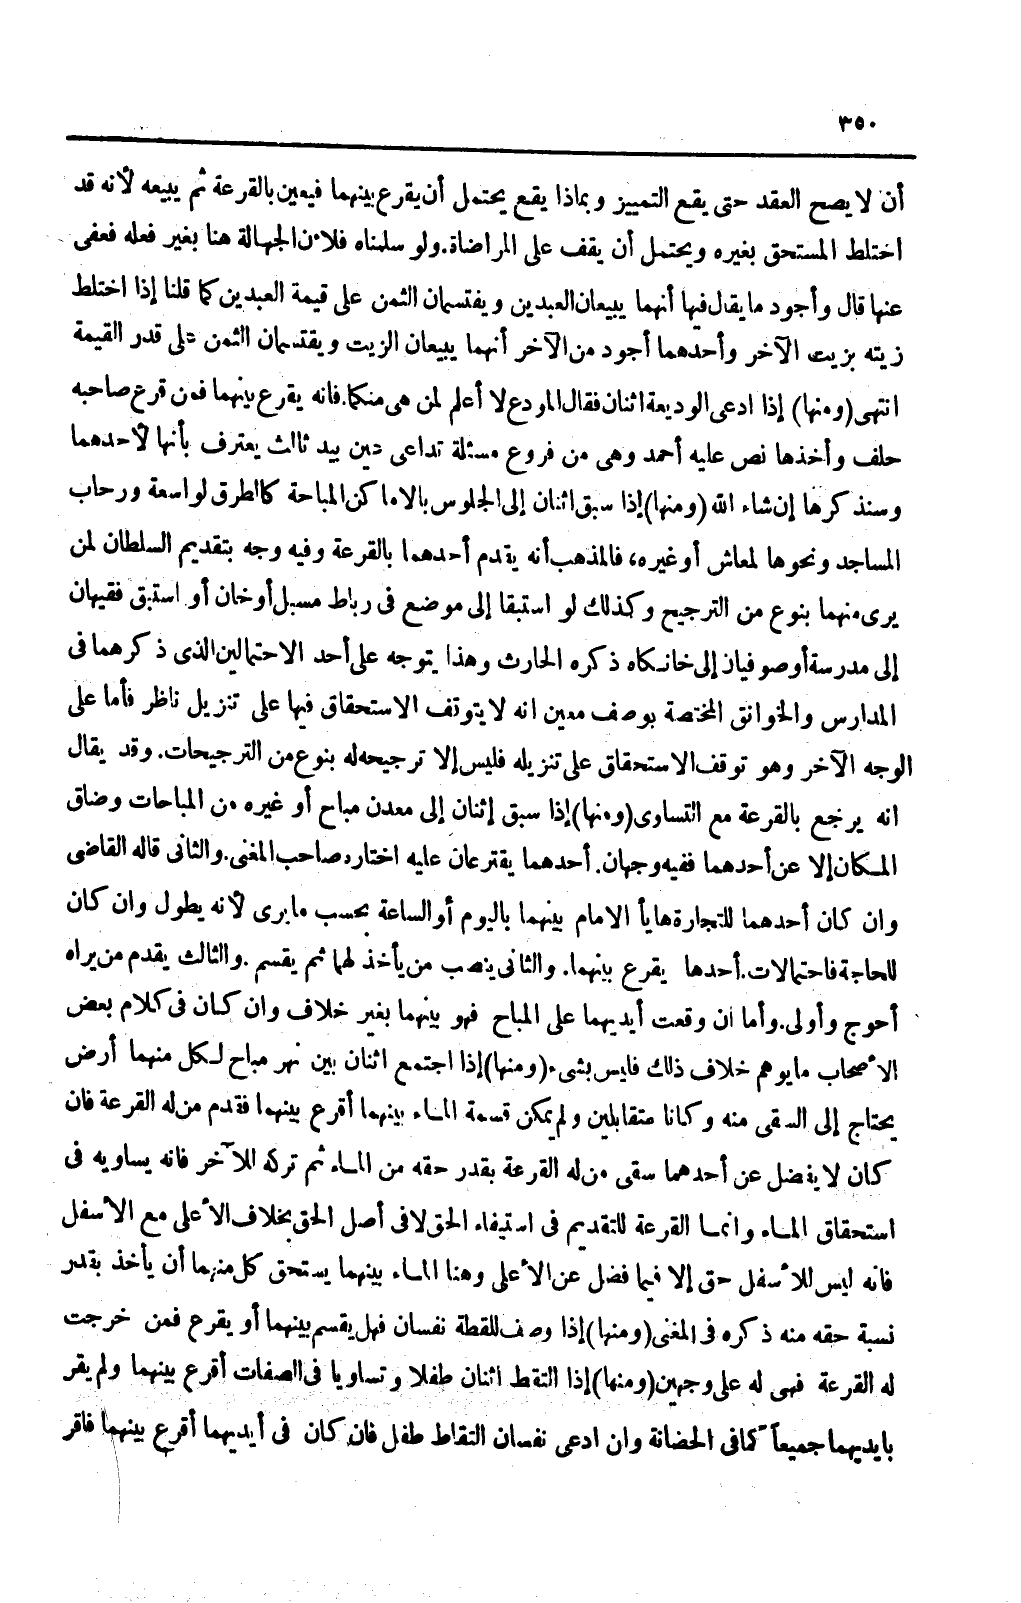 ٣٥٠
أن لا يصح العقد حتى يقع التمييز وبماذا يقع يحتمل أن يقرع بينهما فيعين بالقرعة ثم يبيعه لأنه قد
اختلط المستحق بغيره ويحتمل أن يقف على المراضاة. ولو سلمناه فلأن الجهالة هنا بغير فعله فعفى
عنها قال وأجود ما يقال فيها أنهما يبيعان العبدين ويقتسمان الثمن على قيمة العبدين كما قلنا إذا اختلط
زيته بزيت الآخر وأحدهما أجود من الآخر أنهما يبيعان الزيت ويقتسمان الثمن على قدر القيمة
انتهى (ومنها) إذا ادعى الوديعة اثنان فقال المودع لا أعلم لمن هى منكما. فانه يقرع بينهما فمن قرع صاحبه
حلف وأخذها نص عليه أحمد وهى من فروع مسئلة تداعى عين بيد ثالث يعترف بأنها لأحدهما
وسنذكرها إن شاء الله (ومنها) إذا سبق اثنان إلى الجلوس بالاماكن المباحة كالطرق الواسعة ورحاب
المساجد ونحوها لمعاش أو غيره، فالمذهب أنه يقدم أحدهما بالقرعة وفيه وجه بتقديم السلطان لمن
يرى منهما بنوع من الترجيح وكذلك لو استبقا إلى موضع فى رباط مسبل أو خان أو استبق فقيهان
إلى مدرسة أو صوفيان إلى خانكاه ذكره الحارث وهذا يتوجه على أحد الاحتمالين الذى ذكرهما فى
المدارس والخوانق المختصة بوصف معين انه لا يتوقف الاستحقاق فيها على تنزيل ناظر فأما على
الوجه الآخر وهو توقف الاستحقاق على تنزيله فليس إلا ترجيحه له بنوع من الترجيحات. وقد يقال
انه يرجع بالقرعة مع التساوى (ومنها) إذا سبق إثنان إلى معدن مباح أو غيره من المباحات وضاق
المكان إلا عن أحدهما ففيه وجهان. أحدهما يقترعان عليه اختاره صاحب المغنى. والثانى قاله القاضى
وان كان أحدهما للتجارة هايأ الامام بينهما باليوم أو الساعة بحسب ما يرى لأنه يطول وان كان
للحاجة فاحتمالات. أحدها يقرع بينهما. والثانى ينصب من يأخذ لهما ثم يقسم. والثالث يقدم من يراه
أحوج وأولى. وأما ان وقعت أيديهما على المباح فهو بينهما بغير خلاف وان كان فى كلام بعض
الأصحاب ما يوهم خلاف ذلك فليس بشىء (ومنها) إذا اجتمع اثنان بين نهر مباح لكل منهما أرض
يحتاج إلى السقى منه وكانا متقابلين ولم يمكن قسمة الماء بينهما أقرع بينهما فقدم من له القرعة فان
كان لا يفضل عن أحدهما سقى من له القرعة بقدر حقه من الماء ثم تركه للآخر فانه يساويه فى
استحقاق الماء وانما القرعة للتقديم فى استيفاء الحق لا فى أصل الحق بخلاف الأعلى مع الأسفل
فانه ليس للأسفل حق إلا فيما فضل عن الأعلى وهنا الماء بينهما يستحق كل منهما أن يأخذ بقدر
نسبة حقه منه ذكره فى المغنى (ومنها) إذا وصف للقطة نفسان فهل يقسم بينهما أو يقرع فمن خرجت
له القرعة فهى له على وجهين (ومنها) إذا التقط اثنان طفلا وتساويا فى الصفات أقرع بينهما ولم يقر
بايديهما جميعاً كما فى الحضانة وان ادعى نفسان التقاط طفل فان كان فى أيديهما أقرع بينهما فاقر